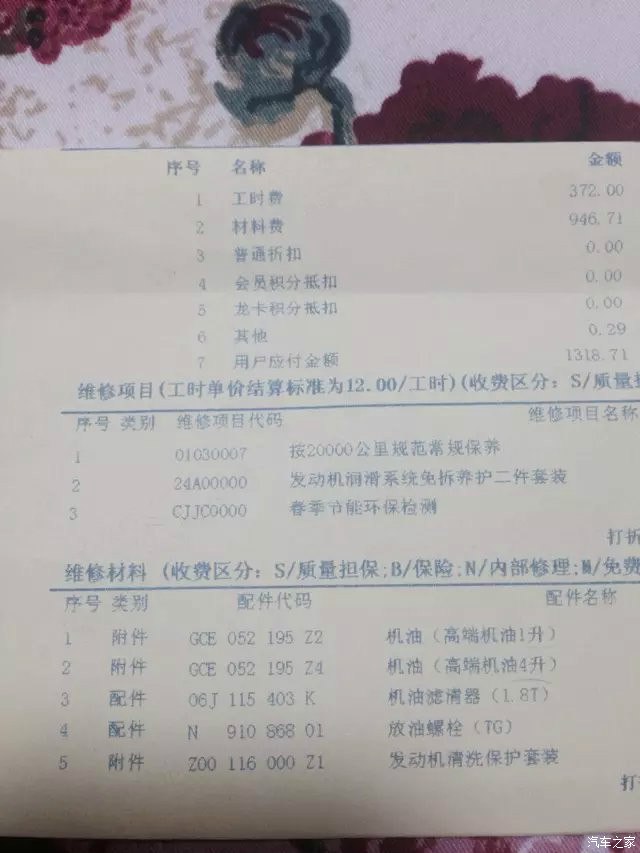 序号 名称 金额
1 工时费 372.00
2 材料费 946.71
3 普通折扣 0.00
4 会员积分抵扣 0.00
5 龙卡积分抵扣 0.00
6 其他 0.29
7 用户应付金额 1318.71
维修项目(工时单价结算标准为12.00/工时)(收费区分: S/质量
序号 类别 维修项目代码 维修项目名称
1 01030007 按20000公里规范常规保养
2 24A00000 发动机润滑系统免拆养护二件套装
3 CJJC0000 春季节能环保检测
打折
维修材料 (收费区分: S/质量担保;B/保险;N/内部修理;M/免费
序号 类别 配件代码 配件名称
1 附件 GCE 052 195 Z2 机油 (高端机油1升)
2 附件 GCE 052 195 Z4 机油 (高端机油4升)
3 配件 06J 115 403 K 机油滤清器 (1.8T)
4 配件 N 910 868 01 放油螺栓 (TG)
5 附件 Z00 116 000 Z1 发动机清洗保护套装
打
汽车之家